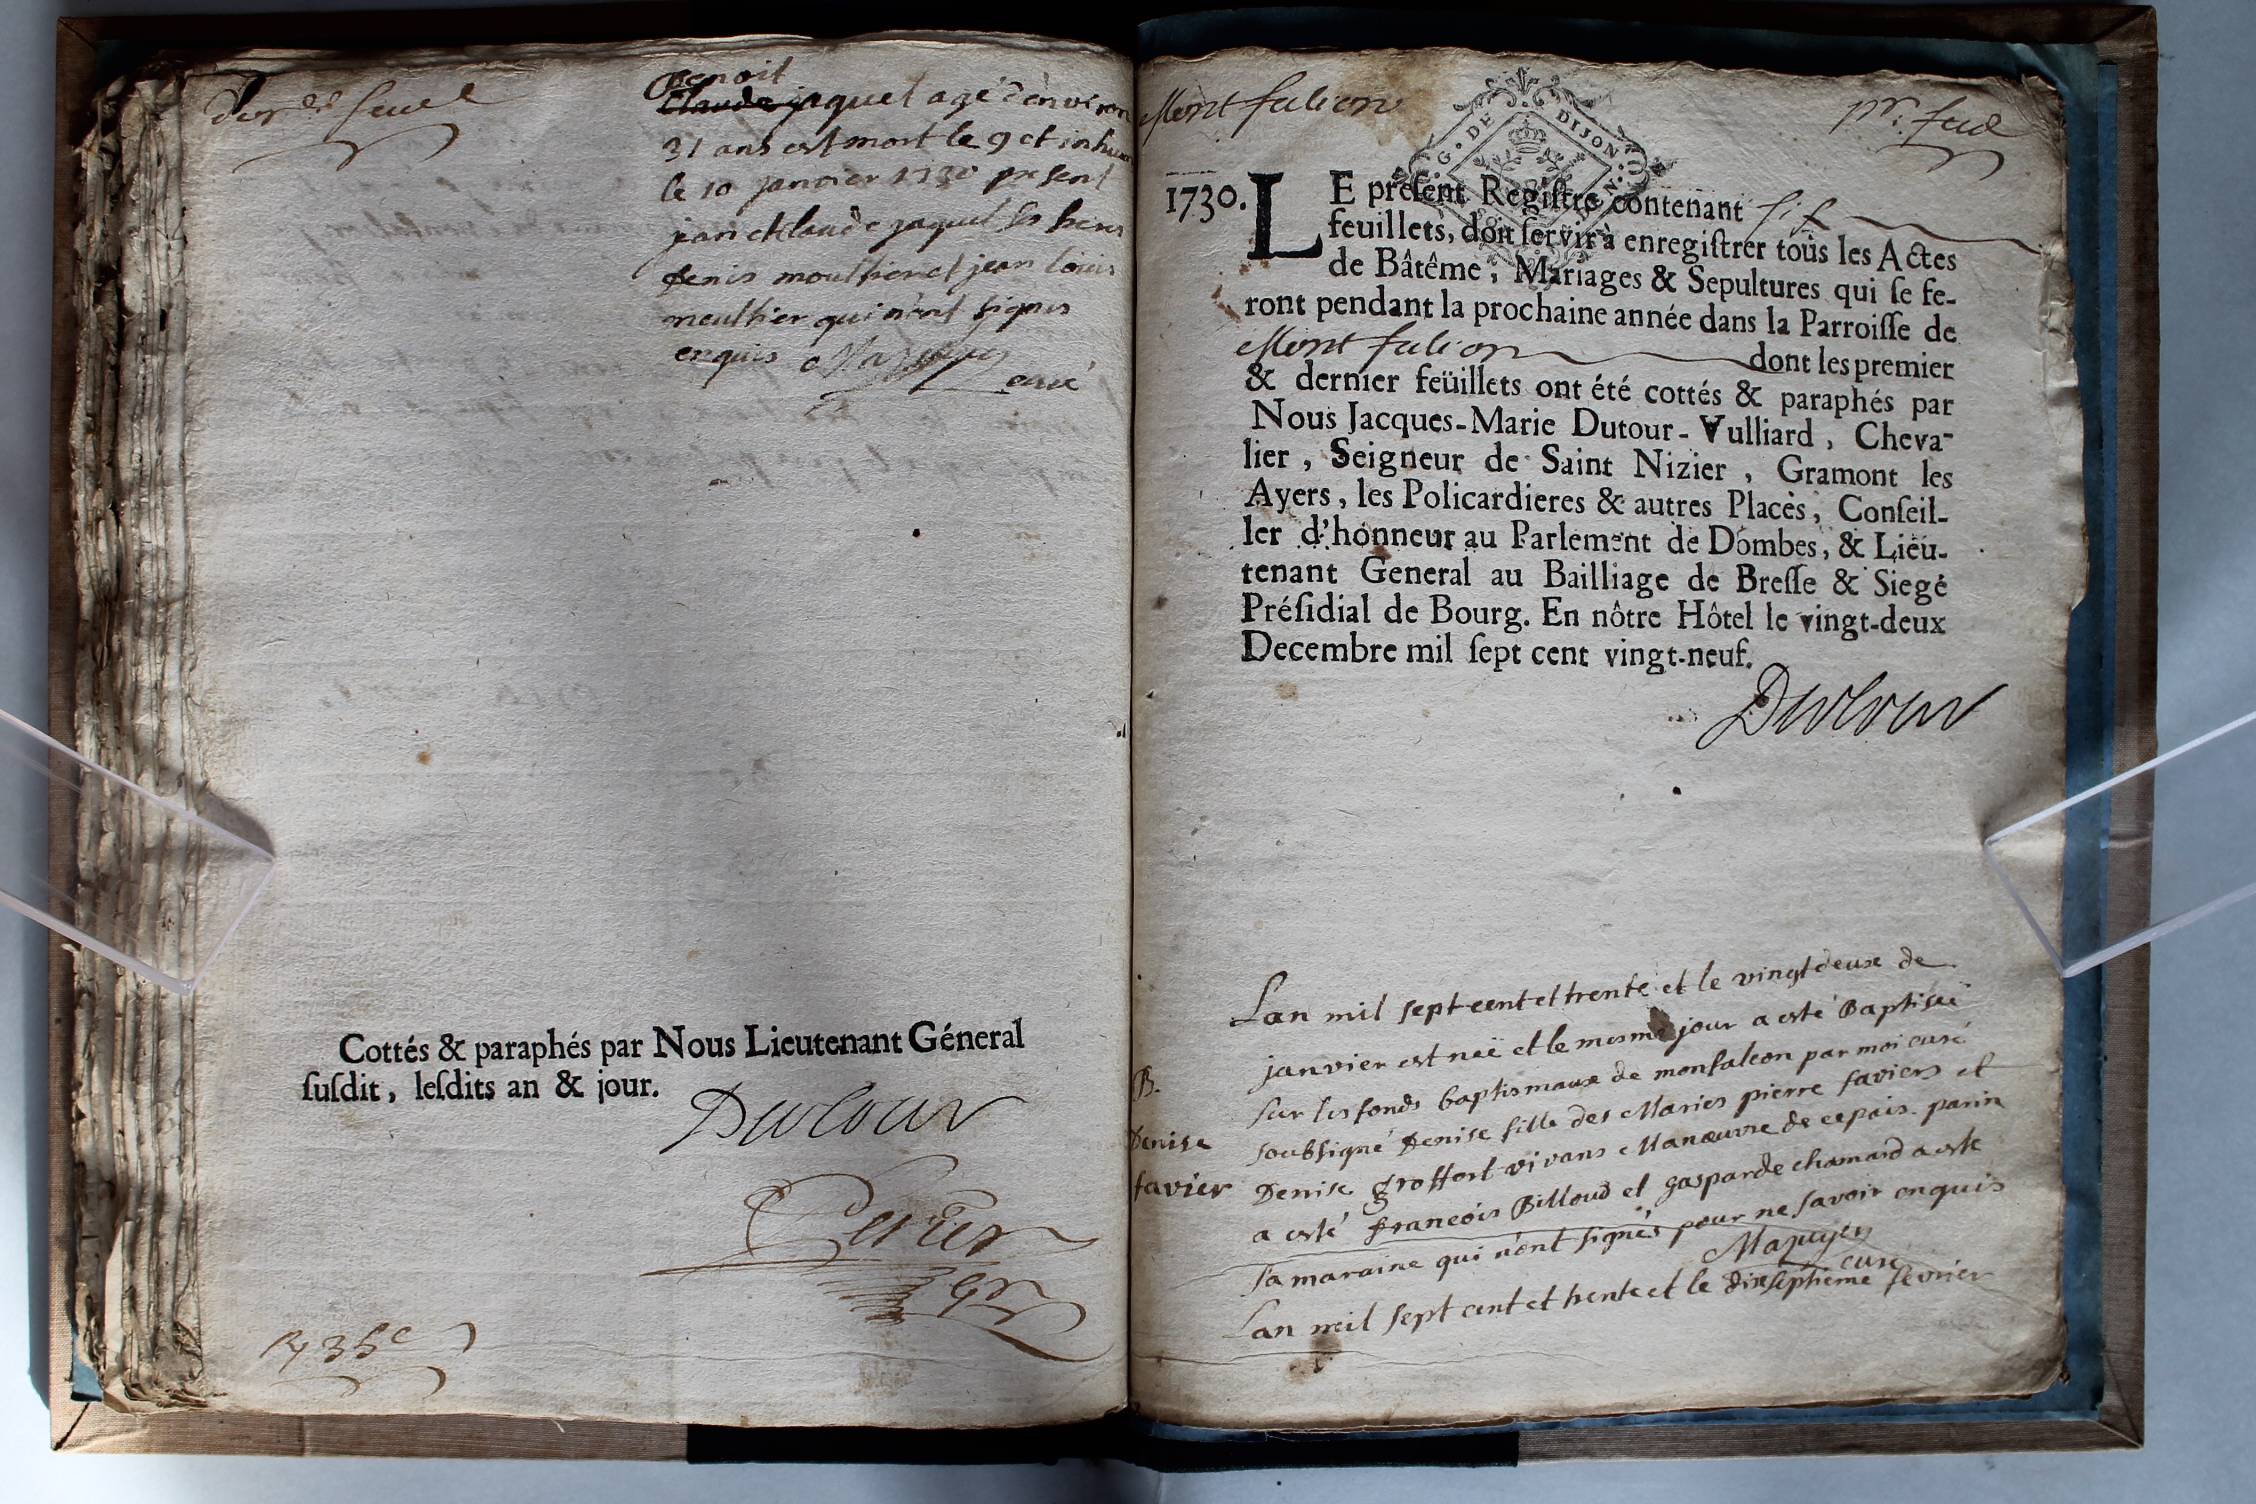 Benoit
Claude jaquet agé d'environ
31 ans est mort le 9 et inhumé
le 10 janvier 1730 present
jean et Claude jaquet ses freres
denis moulthier et jean louis
meulthier qui n'ont signes
enquis Mazuyer
curé
Cottés & paraphés par Nous Lieutenant Géneral
ſuſdit, leſdits an & jour.
Dutour
Perier
Montfalcon
pr. feul
G. DE DIJON
1730. LE preſent Regiſtre contenant six
feuillets, doit ſervir à enregiſtrer tous les Actes
de Bâtême, Mariages & Sepultures qui ſe fe-
ront pendant la prochaine année dans la Parroiſſe de
Montfalcon dont les premier
& dernier feüillets ont été cottés & paraphés par
Nous Jacques-Marie Dutour-Vulliard, Cheva-
lier, Seigneur de Saint Nizier, Gramont les
Ayers, les Policardieres & autres Places, Conſeil-
ler d'honneur au Parlement de Dombes, & Lieu-
tenant General au Bailliage de Breſſe & Siegé
Préſidial de Bourg. En nôtre Hôtel le vingt-deux
Decembre mil ſept cent vingt-neuf.
Dutour
Lan mil sept cent et trente et le vingt deux de
janvier est neë et le mesme jour a esté Baptiseë
sur les fonds baptismaux de monfalcon par moi curé
soubsigné Denise fille des Maries pierre faviers et
Denise groffort vivans Manœuvre de ce pais. parin
a esté françois Billoud et gasparde chamard a este
sa maraine qui n'ont signés pour ne savoir enquis
Mazuyer
curé
B.
Denise
favier
Lan mil sept cent et trente et le dixseptieme fevrier